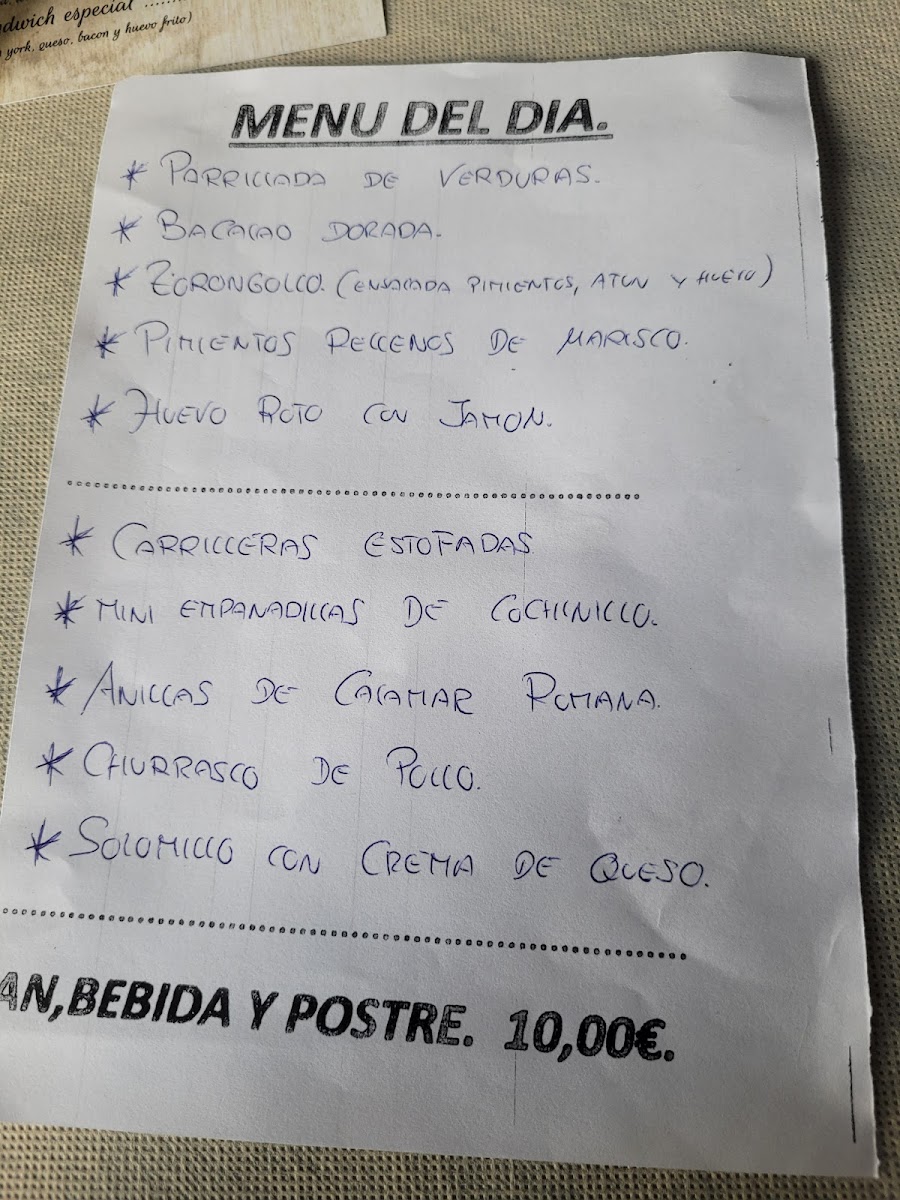 dwich especial ........
york, queso, bacon y huevo frito)
MENU DEL DIA.
* PARRILLADA DE VERDURAS.
* BACALAO DORADA.
* ZORONGOLLO. (ENSALADA PIMIENTOS, ATUN Y HUEVO)
* PIMIENTOS RELLENOS DE MARISCO.
* HUEVO ROTO CON JAMON.
* CARRILLERAS ESTOFADAS
* MINI EMPANADILLAS DE COCHINILLO.
* ANILLAS DE CALAMAR ROMANA.
* CHURRASCO DE POLLO.
* SOLOMILLO CON CREMA DE QUESO.
AN,BEBIDA Y POSTRE. 10,00€.